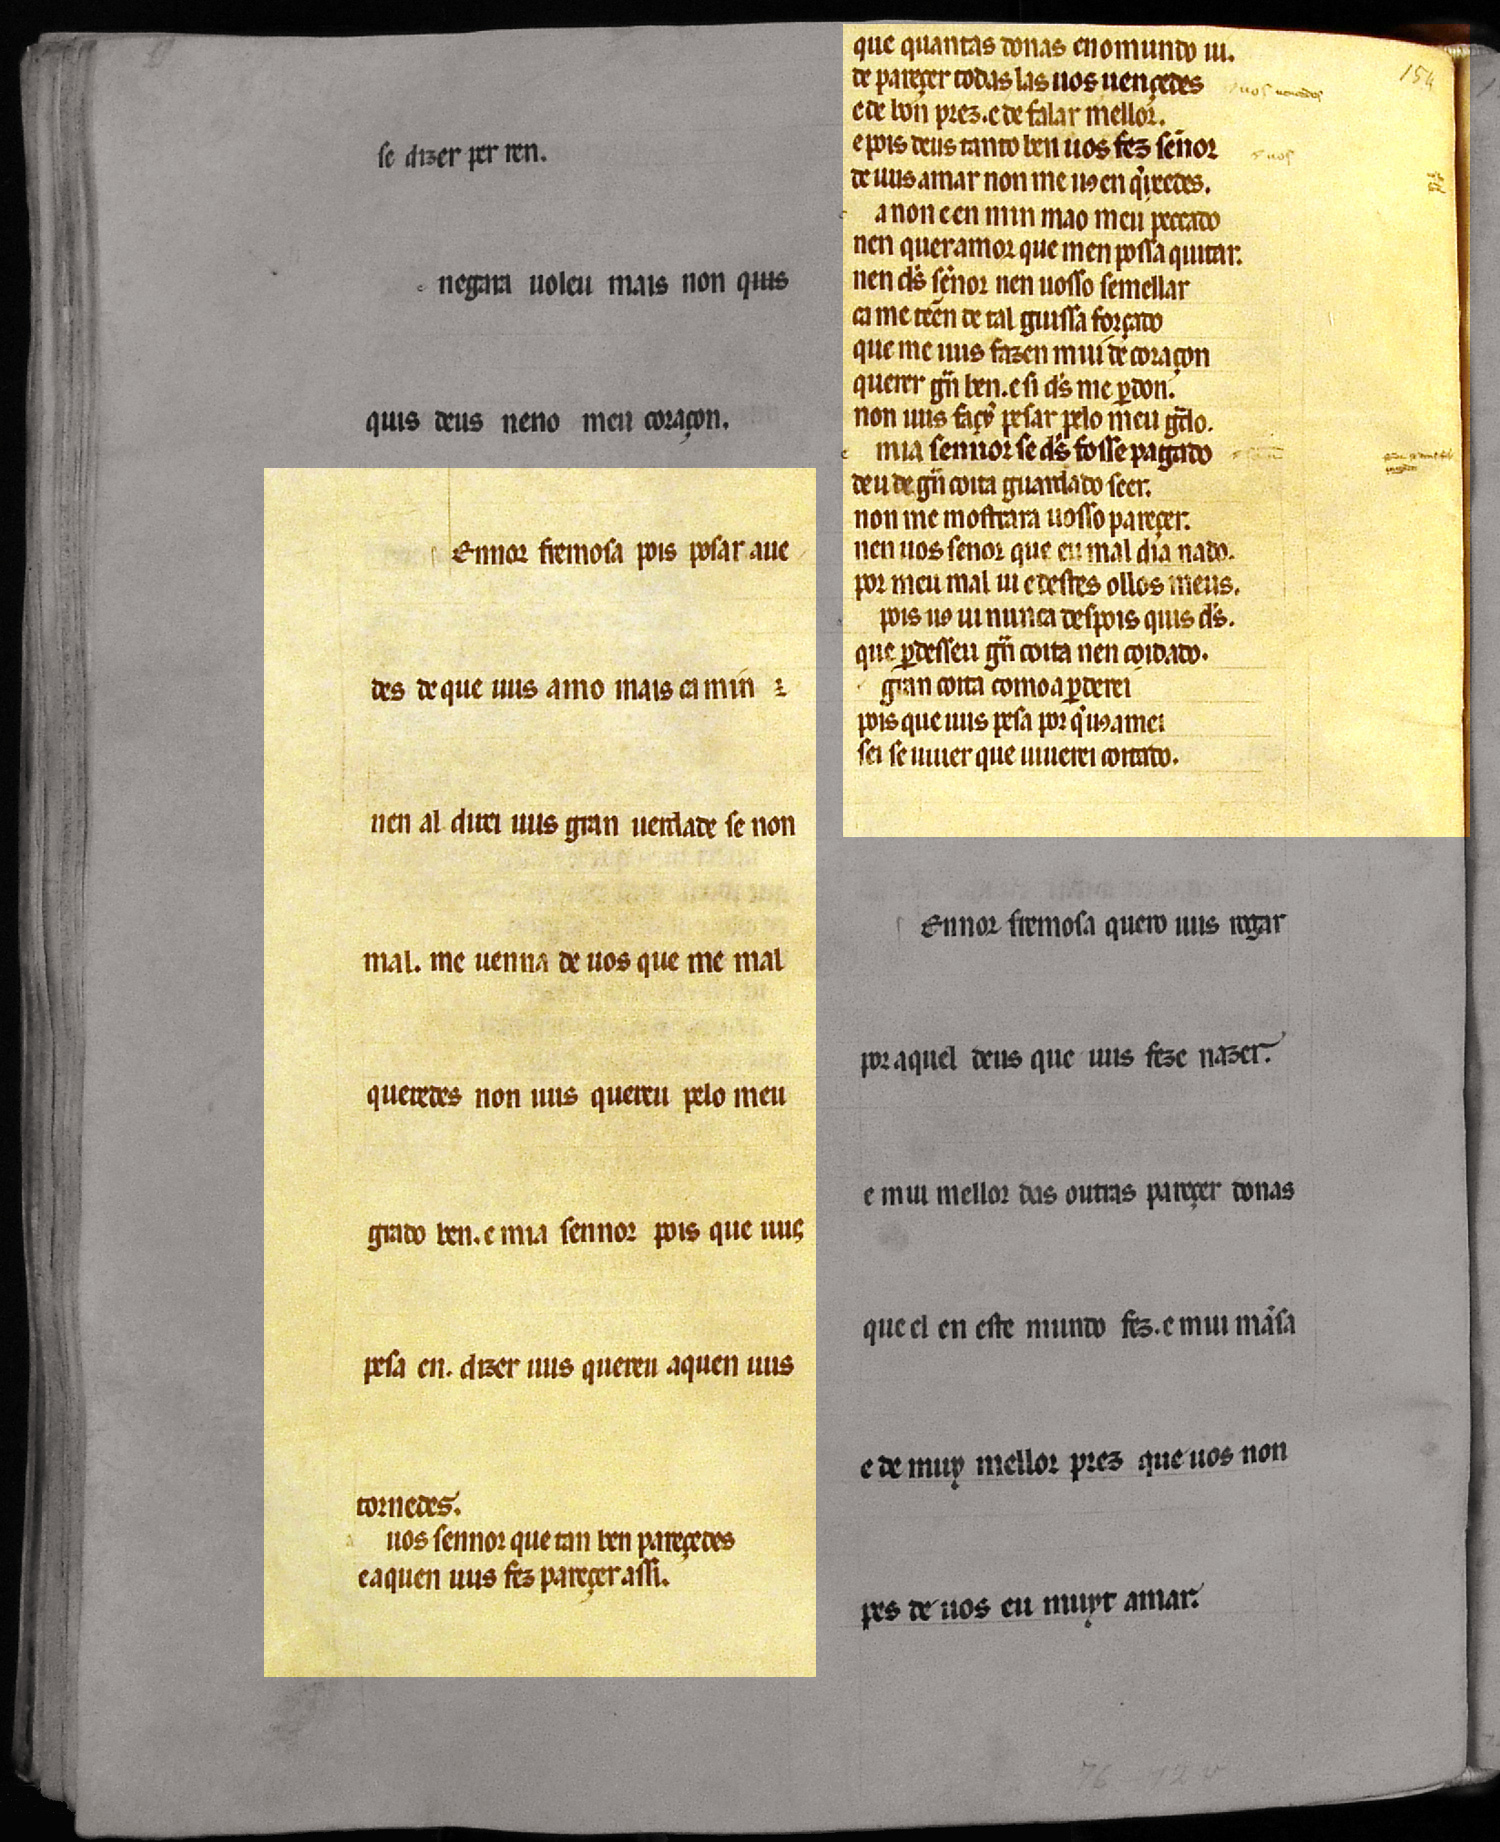 se dizer per ren.
negara uoleu mais non quis
quis deus neno meu coraçon.
Ennor fremosa pois pesar aue
des de que uus amo mais ca min ⁊
nen al direi uus gran uerdade se non
mal. me uenna de uos que me mal
queredes non uus quereu pelo meu
grado ben. e mia sennor pois que uus
pesa en. dizer uus quereu aquen uus
tornedes.
uos sennor que tan ben pareçedes
e aquen uus fez pareçer assi.
que quantas donas eno mundo ui.
de pareçer todas las uos uençedes
e de bon prez. e de falar mellor.
e pois deus tanto ben uos fez señor
de uus amar non me uꝯ en q̇ixedes.
a non e en min mao meu peccado
nen quer amor que men possa quitar.
nen d̄s señor nen uosso semellar
ca me teẽn de tal guissa forçado
que me uus fazen mui de coraçon
querer gñ ben. e si d̄s me ꝑdon.
non uus faç pesar pelo meu gͣdo.
mia sennor se d̄s fosse pagado
deu de gñ coita guardado seer.
non me mostrara uosso pareçer.
nen uos senor que eu mal dia nado.
por meu mal ui e destes ollos meus.
pois uꝯ ui nunca despois quis d̄s.
que ꝑdesseu gñ coita nen coidado.
gran coita como a ꝑderei
pois que uus pesa por q̇ uꝯ amei
sei se uiuer que uiuerei coitado.
Ennor fremosa quero uus rogar
por aquel deus que uus feze nazer.
e mui mellor das outras pareçer donas
que el en este mundo fez. e mui mãsa
e de muy mellor prez que uos non
pes de uos eu muyt amar.
uos uençedes
uos
154
76 72 v